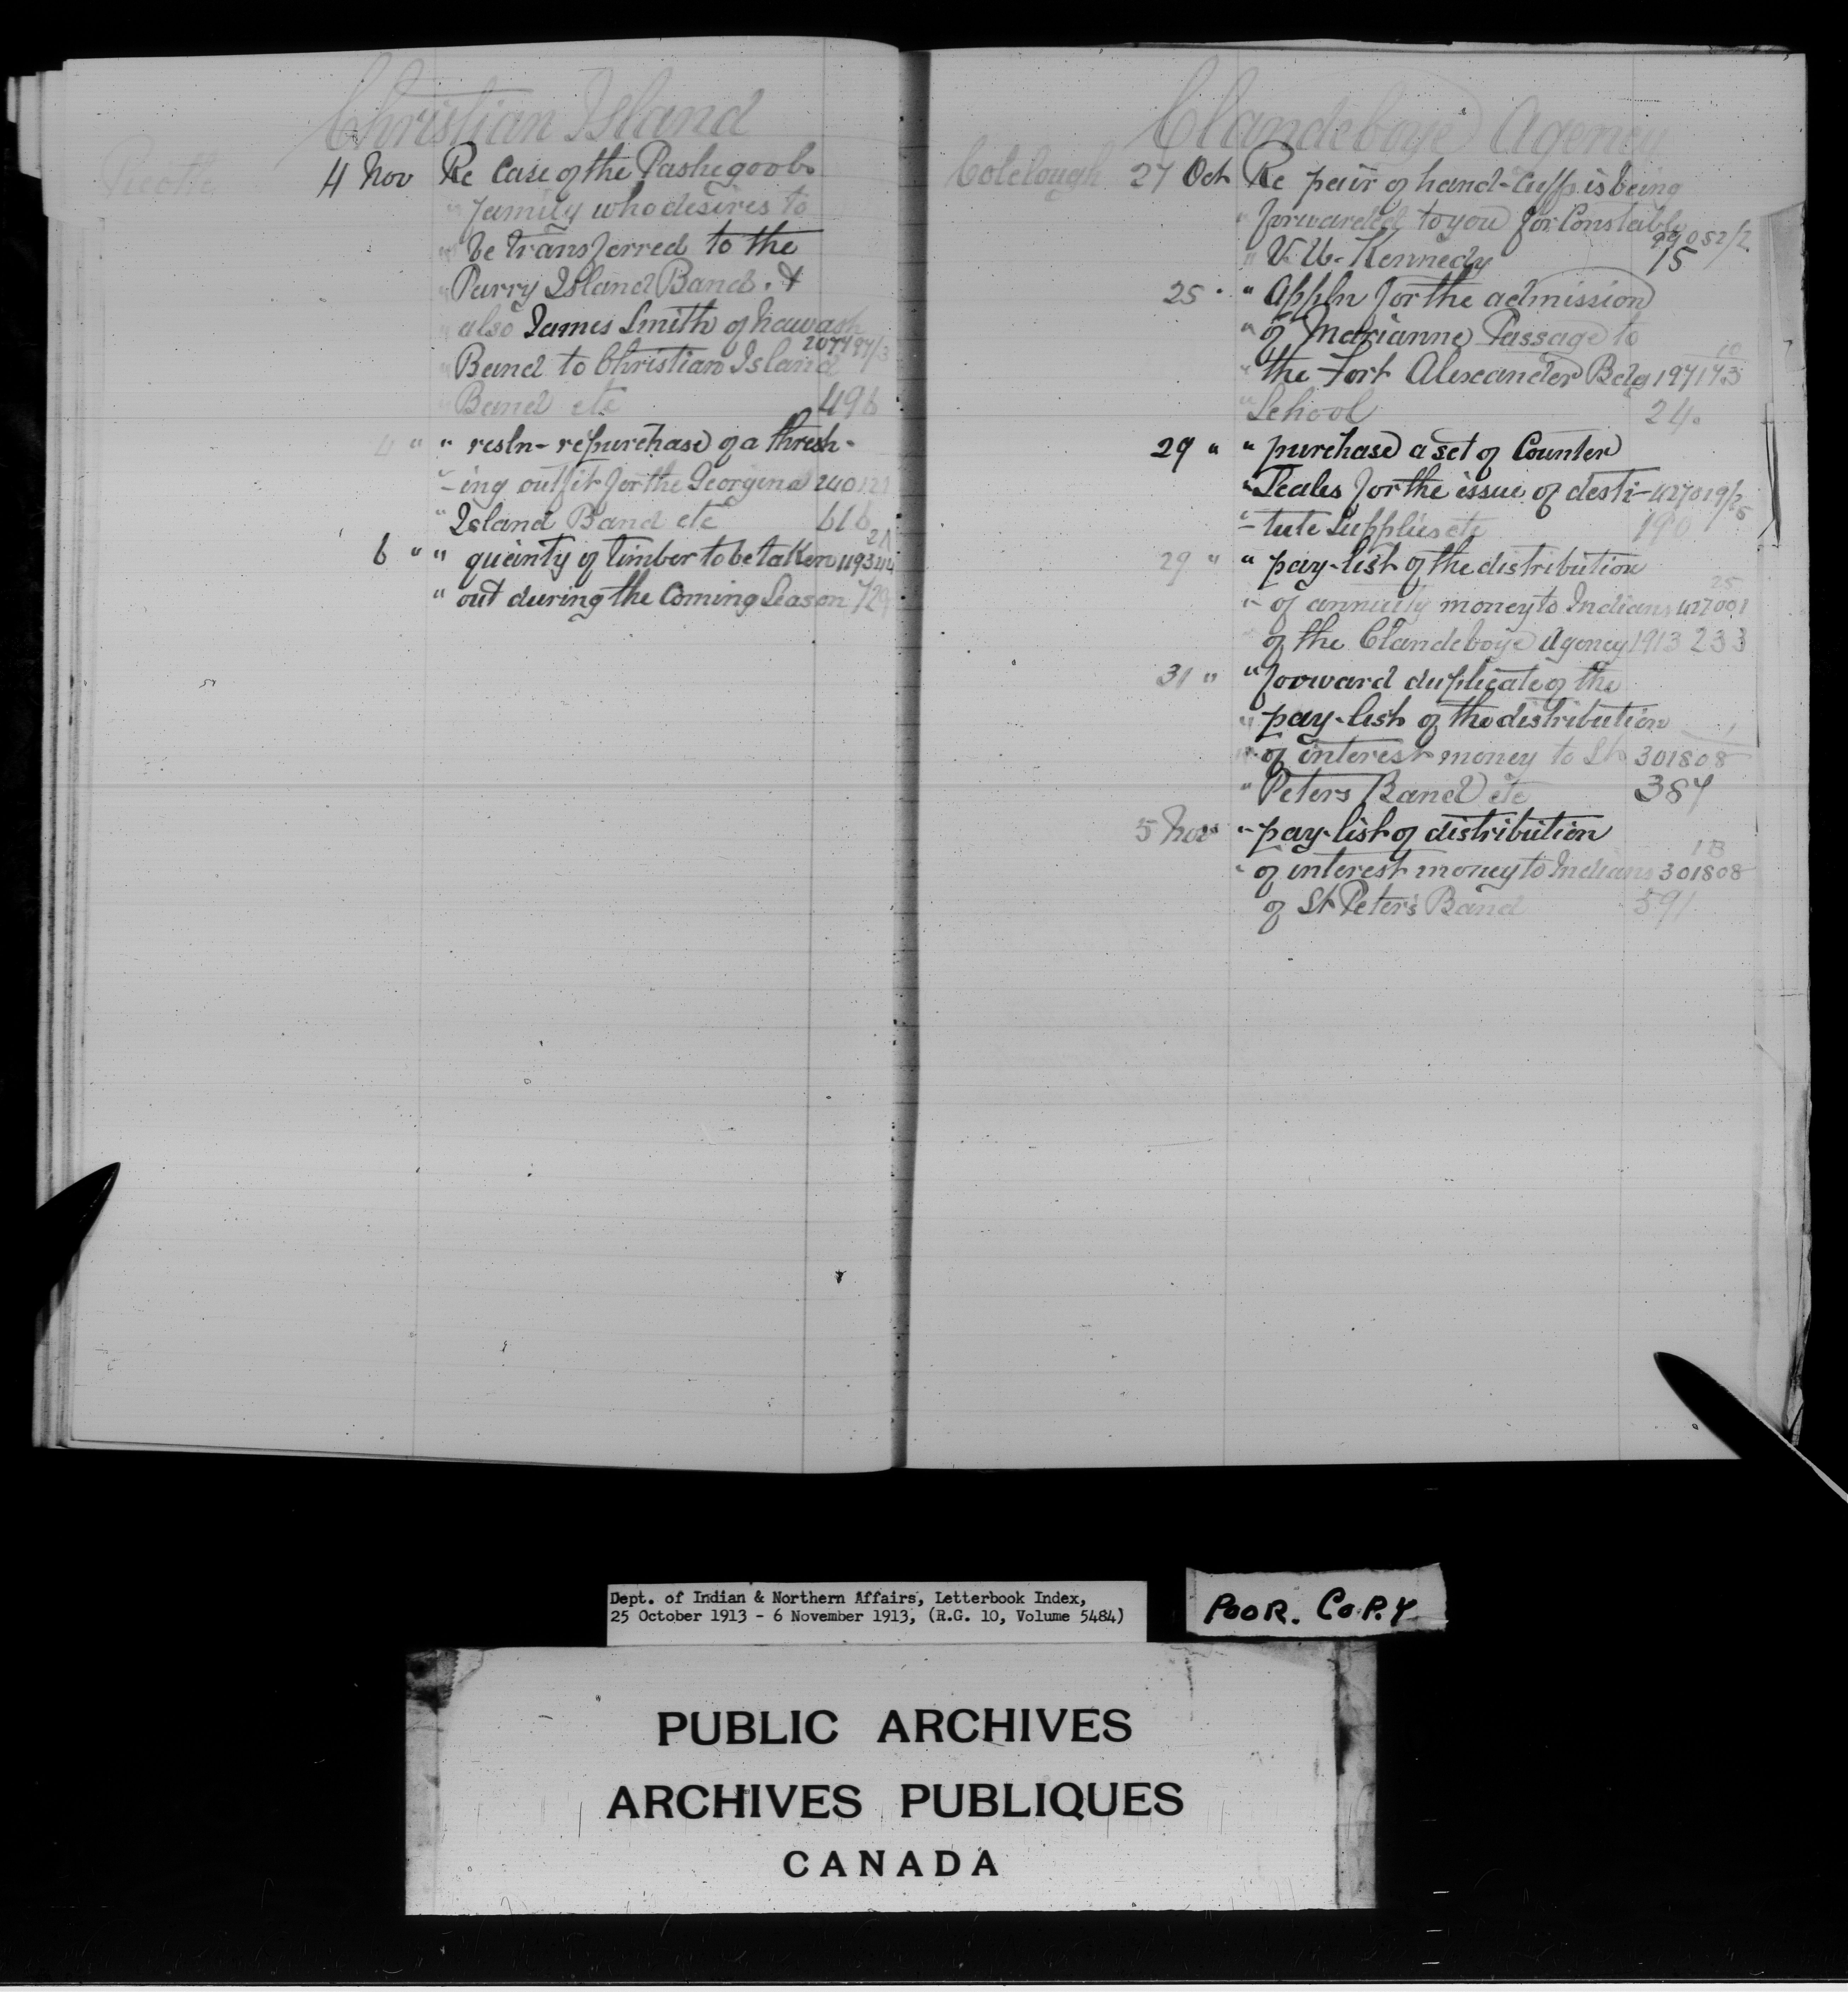 Christian Island
Picotte 4 Nov Re Case of the Pashegoobs
" family who desires to
" be transferred to the
" Parry Island Band. &
" also James Smith of Nawash
207497/3
" Band to Christian Island
" Band etc 496
4 " " resln - re purchase of a thresh-
"-ing outfit for the Georgina 240121
" Island Band etc 616
21
6 " " quantity of timber to be taken 119344
" out during the Coming Season 729
Clandeboye Agency
Colclough 27 Oct Re pair of hand-cuffs is being
" forwarded to you for Constable
99052/2
" V. W. Kennedy 15
25 " " Appln for the admission
" of Marianne Passage to
10
" the Fort Alexander Bdg 197173
" School 24.
29 " " purchase a set of Counter
" Scales for the issue of desti- 427019/25
"-tute Supplies etc 190
29 " " pay-list of the distribution
25
"- of annuity money to Indians 427001
of the Clandeboye Agency 1913 233
31 " " forward duplicate of the
" pay-list of the distribution
1
" of interest money to St 301808
" Peters Band etc 387
5 Nov " pay-list of distribution
1B
" of interest money to Indians 301808
of St Peter's Band 591
Dept. of Indian & Northern Affairs, Letterbook Index,
25 October 1913 - 6 November 1913, (R.G. 10, Volume 5484)
POOR. COPY
PUBLIC ARCHIVES
ARCHIVES PUBLIQUES
CANADA